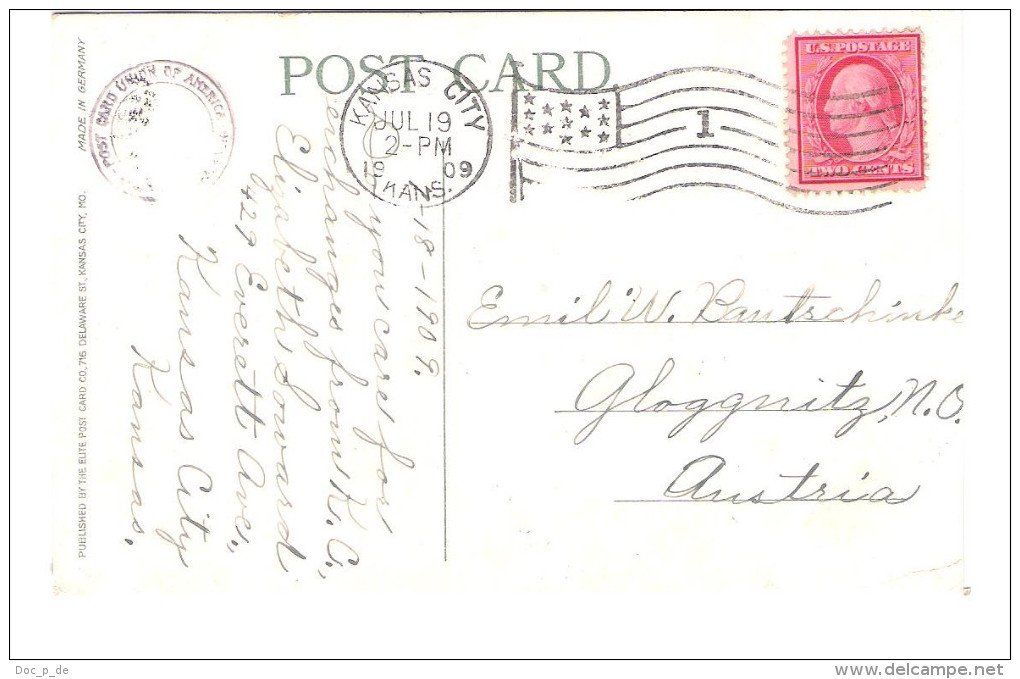 POST CARD.
POST CARD UNION OF AMERICA
MADE IN GERMANY
PUBLISHED BY THE ELITE POST CARD CO., 716 DELAWARE ST., KANSAS CITY, MO.
KANSAS CITY
JUL 19
2-PM
19 09
KANS.
1
U.S. POSTAGE
TWO CENTS
-18-1909.
you care for
exchanges from K.C.,
Elizabeth Soward
427 Everett Ave.,
Kansas City
Kansas.
Emil W. Pautschinke
Gloggnitz, N.O.
Austria
Doc_p_de
www.delcampe.net